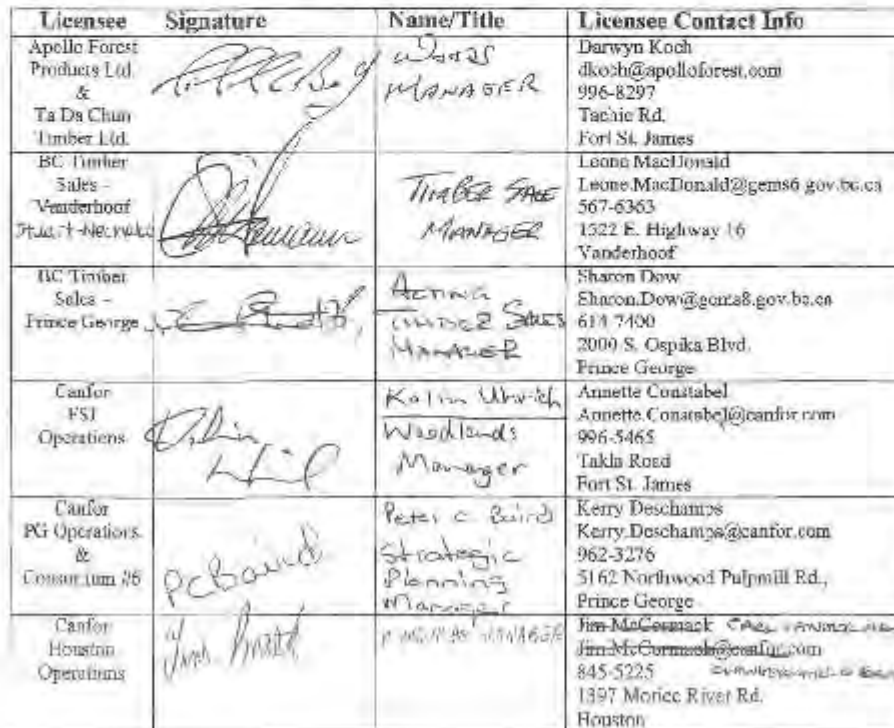 Licensee Signature Name/Title Licensee Contact Info
Apollo Forest
Products Ltd.
&
Ta Da Chun
Timber Ltd.
Woods
MANAGER
Darwyn Koch
dkoch@apolloforest.com
996-8297
Tachie Rd.
Fort St. James
BC Timber
Sales –
Vanderhoof
Stuart-Nechako
TIMBER SALE
MANAGER
Leone MacDonald
Leone.MacDonald@gems6.gov.bc.ca
567-6363
1522 E. Highway 16
Vanderhoof
BC Timber
Sales –
Prince George
ACTING
TIMBER SALES
MANAGER
Sharon Dow
Sharon.Dow@gems8.gov.bc.ca
614-7400
2000 S. Ospika Blvd.
Prince George
Canfor
FSJ
Operations
Kalin Uhrich
Woodlands
Manager
Annette Constabel
Annette.Constabel@canfor.com
996-5465
Takla Road
Fort St. James
Canfor
PG Operations
&
Consortium 26
PCBaird
Peter C Baird
Strategic
Planning
Manager
Kerry Deschamps
Kerry.Deschamps@canfor.com
962-3276
5162 Northwood Pulpmill Rd.,
Prince George
Canfor
Houston
Operations
MANAGER
Jim McCormack
Jim.McCormack@canfor.com
845-5225
1397 Morice River Rd.
Houston